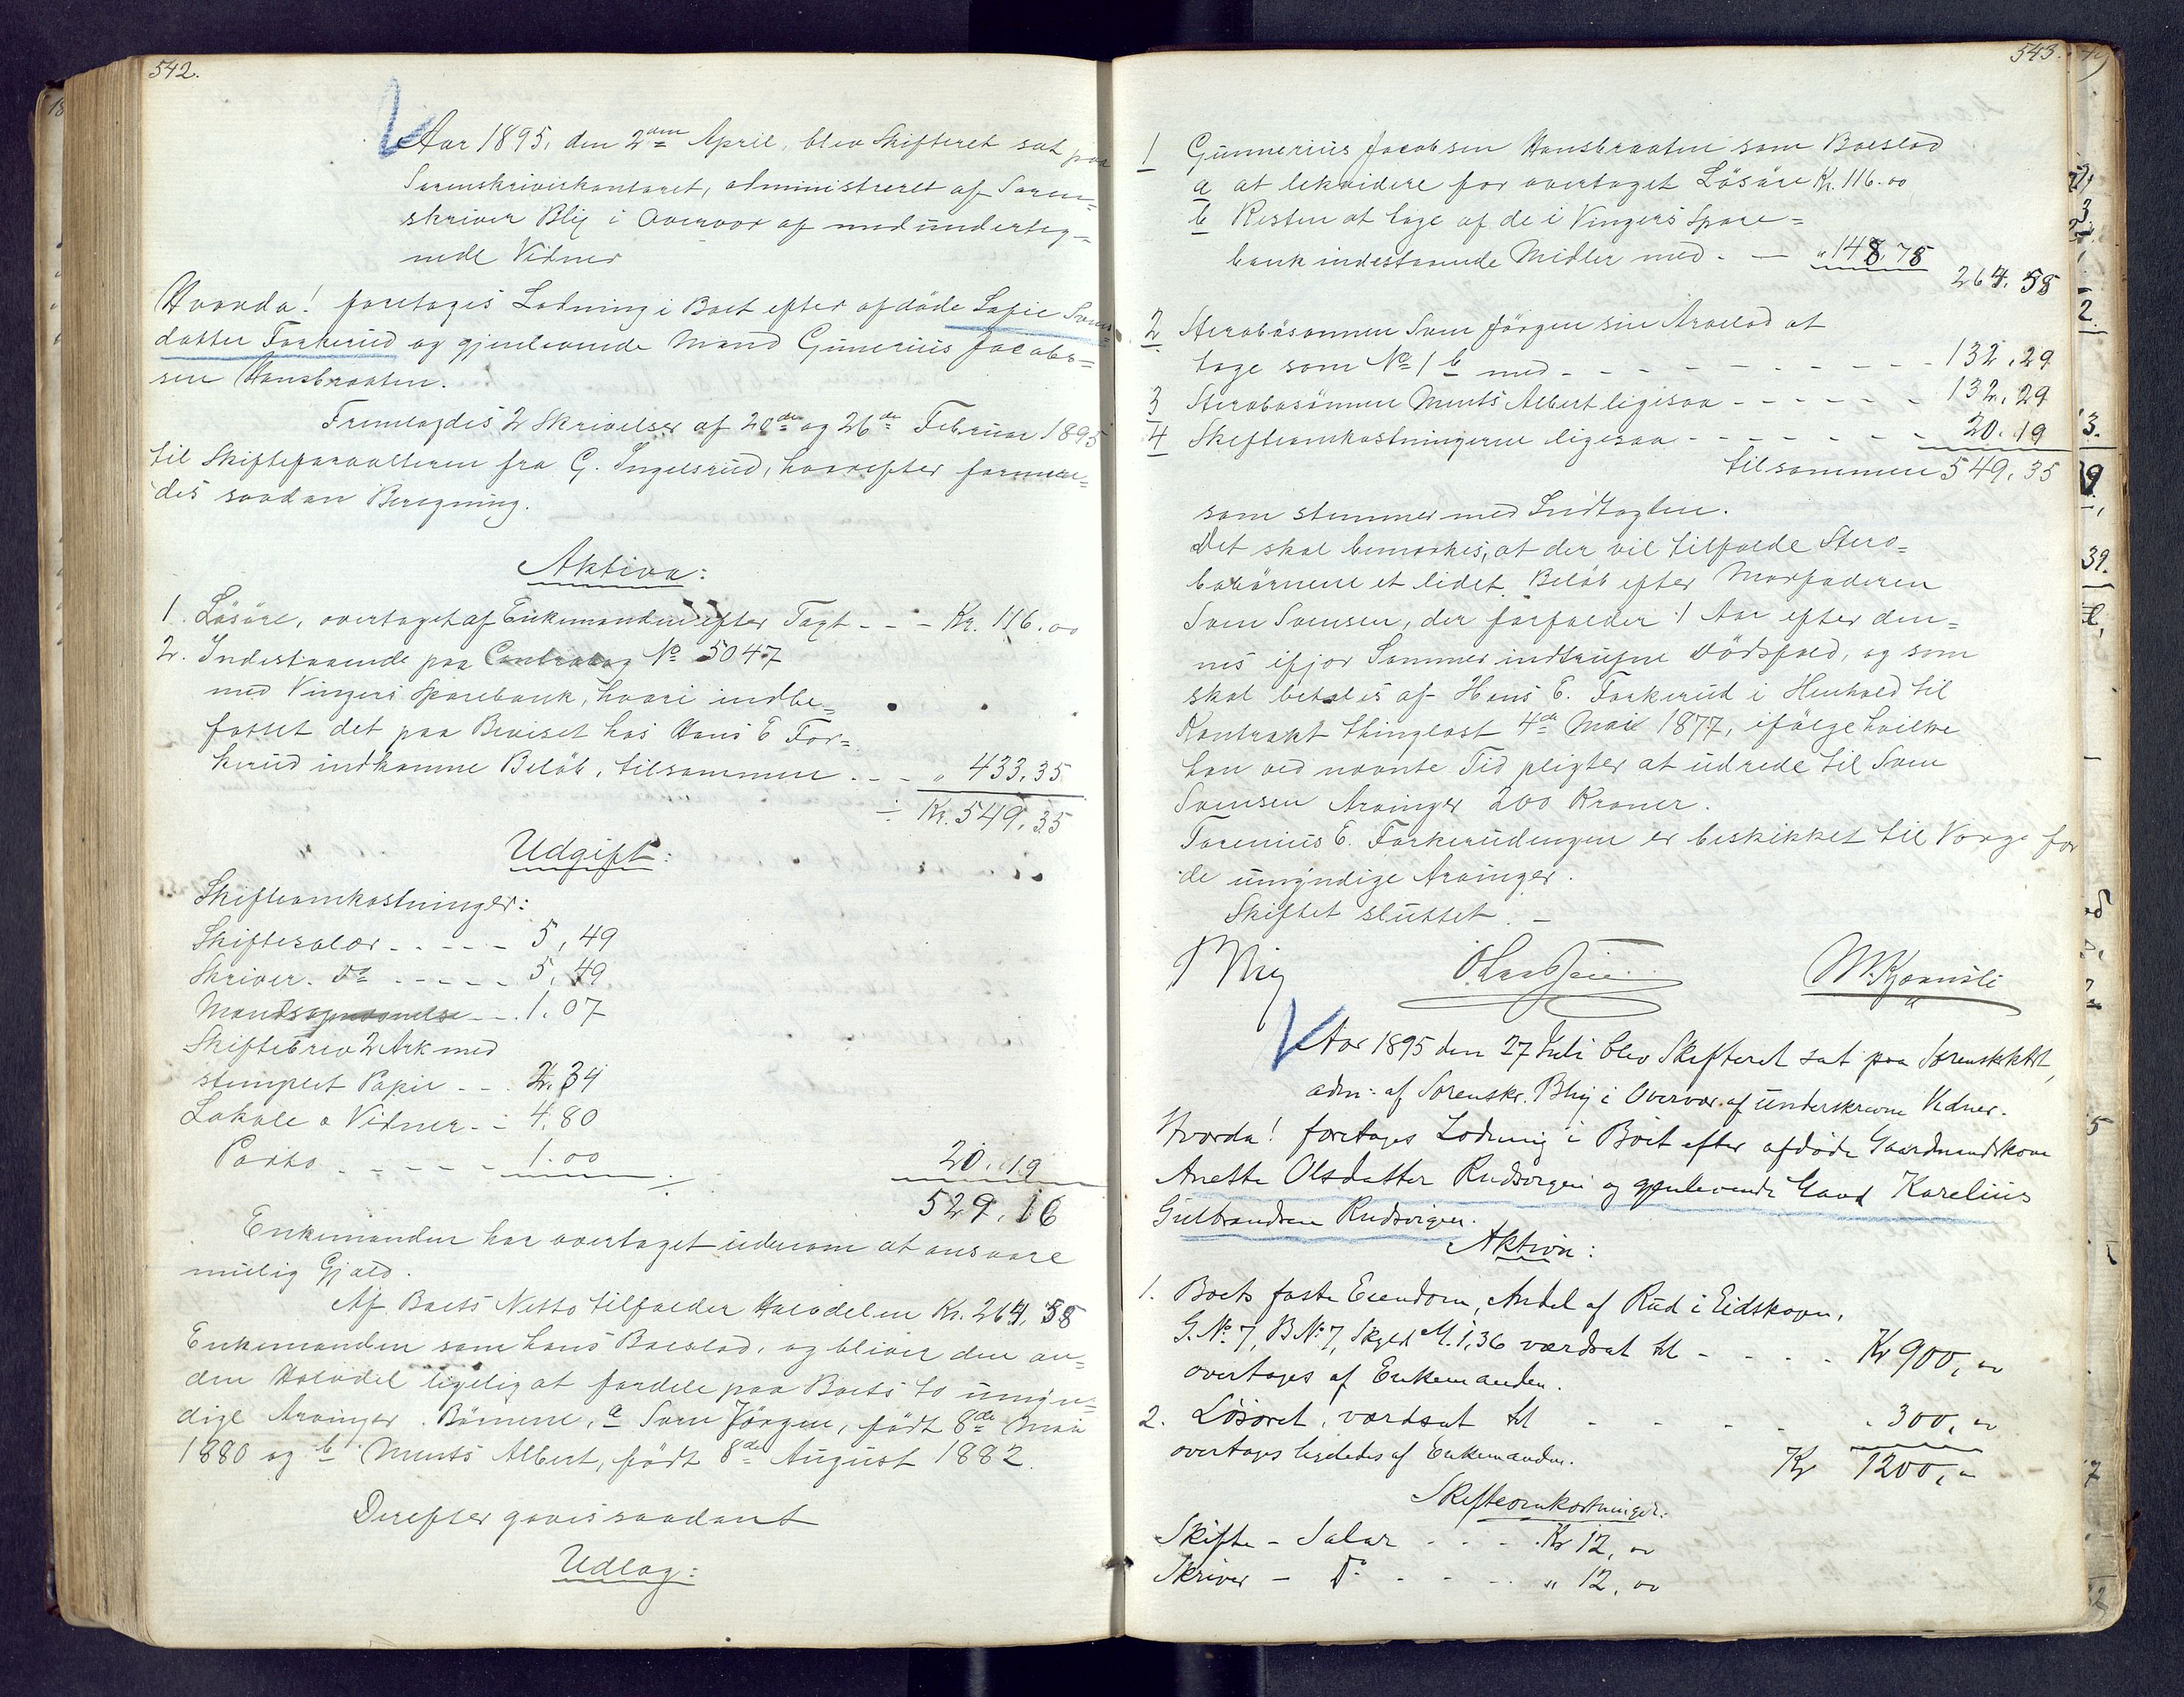 542.
Aar 1895, den 2den April, blev Skifteret sat paa
Sorenskriverkontoret, administreret af Soren=
skriver Blij i Overvær af medunderteg=
nede Vidner
Hvorda! foretoges Lodning i Boet efter afdøde Sofie Svens=
datter Forkerud og gjenlevende Mand Gunerius Jacob=
sen Hansbraaten.
Fremlagdes 2 Skrivelser af 20de og 26de Februar 1895
til Skifteforvalteren fra G. Ingelsrud, hvorefter formere=
des saadan Beregning.
Aktiva:
1. Løsøre, overtaget af Enkemanden efter Taxt - - - Kr. 116.00
2. Indestaaende paa Contrabog No 5047
med Vingers Sparebank, hvori indbe=
fattet det paa Beviset hos Hans E For=
kerud indkomne Beløb, tilsammen - - - „ 433,35
÷ Kr. 549,35
Udgift:
Skifteomkostninger:
Skiftesalær - - - - - 5,49
Skriver. do - - - - - 5,49
Mandsopnævnelse - - 1.07
Skiftebrev 2 Ark med
stemplet Papir - - . 2.34
Lokale & Vidner - - 4.80
Porto - - - - - 1.00
20.19
529.16
Enkemanden har overtaget udenom at ansvare
mulig Gjæld.
Af Boets Netto tilfalder Halvdelen Kr. 264,58
Enkemanden som hans Boeslod, og bliver den an=
den Halvdel ligelig at fordele paa Boets to umyn=
dige Arvinger. Børnene, a Sven Jørgen, født 8de Mai
1880 og b Ments Albert, født 8de August 1882.
Derefter gaves saadant
Udlæg:
543.
1 Gunnerius Jacobsen Hansbraaten som Boeslod
a at lekvidere for overtaget Løsøre Kr. 116.00
b Resten at tage af de i Vingers Spare=
bank indestaaende Midler med - — „ 148,78
264.58
2 Sterbosønnen Sven Jørgen sin Arvelod at
tage som No 1 b med - - - - - - - - - - 132,29
3 Sterbosønnen Ments Albert ligesaa - - - - - - 132,29
4 Skifteomkostningerne ligesaa - - - - - - - 20.19
tilsammen 549,35
som stemmer med Indtægten.
Det skal bemærkes, at der vil tilfalde Stervo=
bobørnene et lidet Beløb efter Morfaderen
Sven Svensen, der forfalder 1 Aar efter den=
nes ifjor Sommer indtrufne Dødsfald, og som
skal betales af Hans E. Forkerud i Henhold til
Kontrakt thinglæst 4de Mai 1877, ifølge hvilken
han ved nævnte Tid pligter at udrede til Sven
Svensen Arvinger 200 Kroner.
Torenius E. Forkerudengen er beskikket til Værge for
de umyndige Arvinger.
Skiftet sluttet. -
Blij
Aar 1895 den 27 Juli blev Skifteret sat paa Sorenskrktrt,
adm: af Sorenskr. Blij i Overvær af underskrevne Vidner.
Hvorda! foretoges Lodning i Boet efter afdøde Gaardmandskone
Anette Olsdatter Rudsvigen og gjenlevende Mand Karelius
Gulbrandsen Rudsvigen.
Aktiva:
1. Boets faste Eiendom, Andel af Rud i Eidskogen,
G.No. 7, B.No. 7, Skyld M. 1,36 værdsat til - - - - Kr 900,00
overtages af Enkemanden.
2. Løsøret, værdsat til - - - - 300,00
overtages ligeledes af Enkemanden. Kr 1200,00
Skifteomkostninger.
Skifte - Salær - - - - Kr 12,00
Skriver - Do - - - - „ 12,00